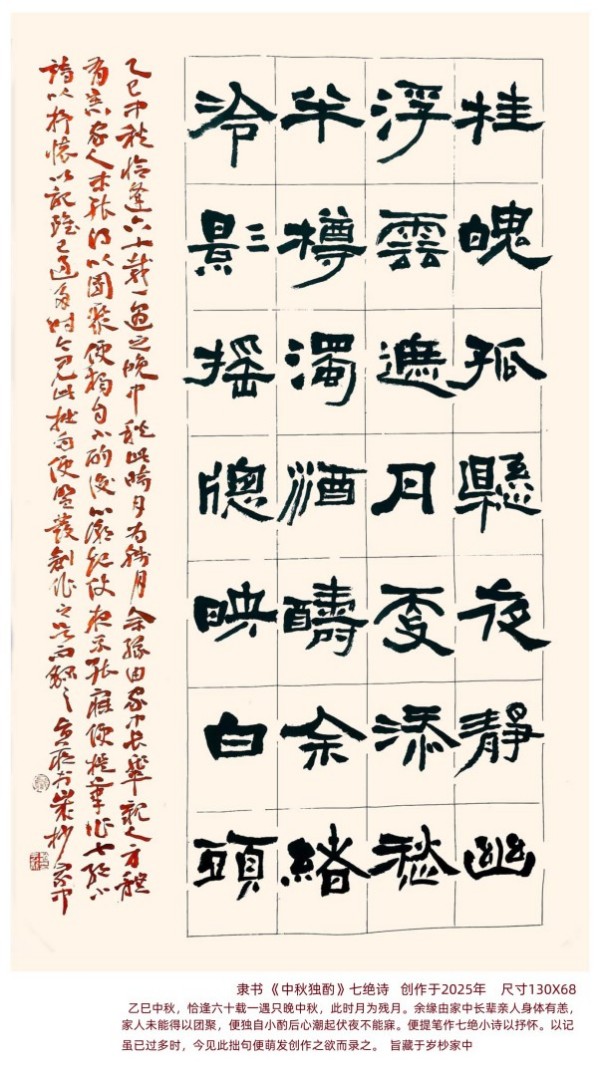 桂魄孤懸夜靜幽
浮雲遮月更添愁
半樽濁酒醻余緒
冷影搖牕映白頭
乙巳中秋恰逢六十載一遇之晚中秋此時月為殘月余緣由家中長輩親人身體
有恙家人未能得以團聚便獨自小酌後心潮起伏夜不能寐便提筆作七絕小
詩以抒懷以記雖已過多時今見此拙句便萌發創作之欲而錄之旨藏於歲杪家中
隶书《中秋独酌》七绝诗 创作于2025年 尺寸130X68
乙巳中秋，恰逢六十载一遇只晚中秋，此时月为残月。余缘由家中长辈亲人身体有恙，
家人未能得以团聚，便独自小酌后心潮起伏夜不能寐。便提笔作七绝小诗以抒怀。以记
虽已过多时，今见此拙句便萌发创作之欲而录之。 旨藏于岁杪家中